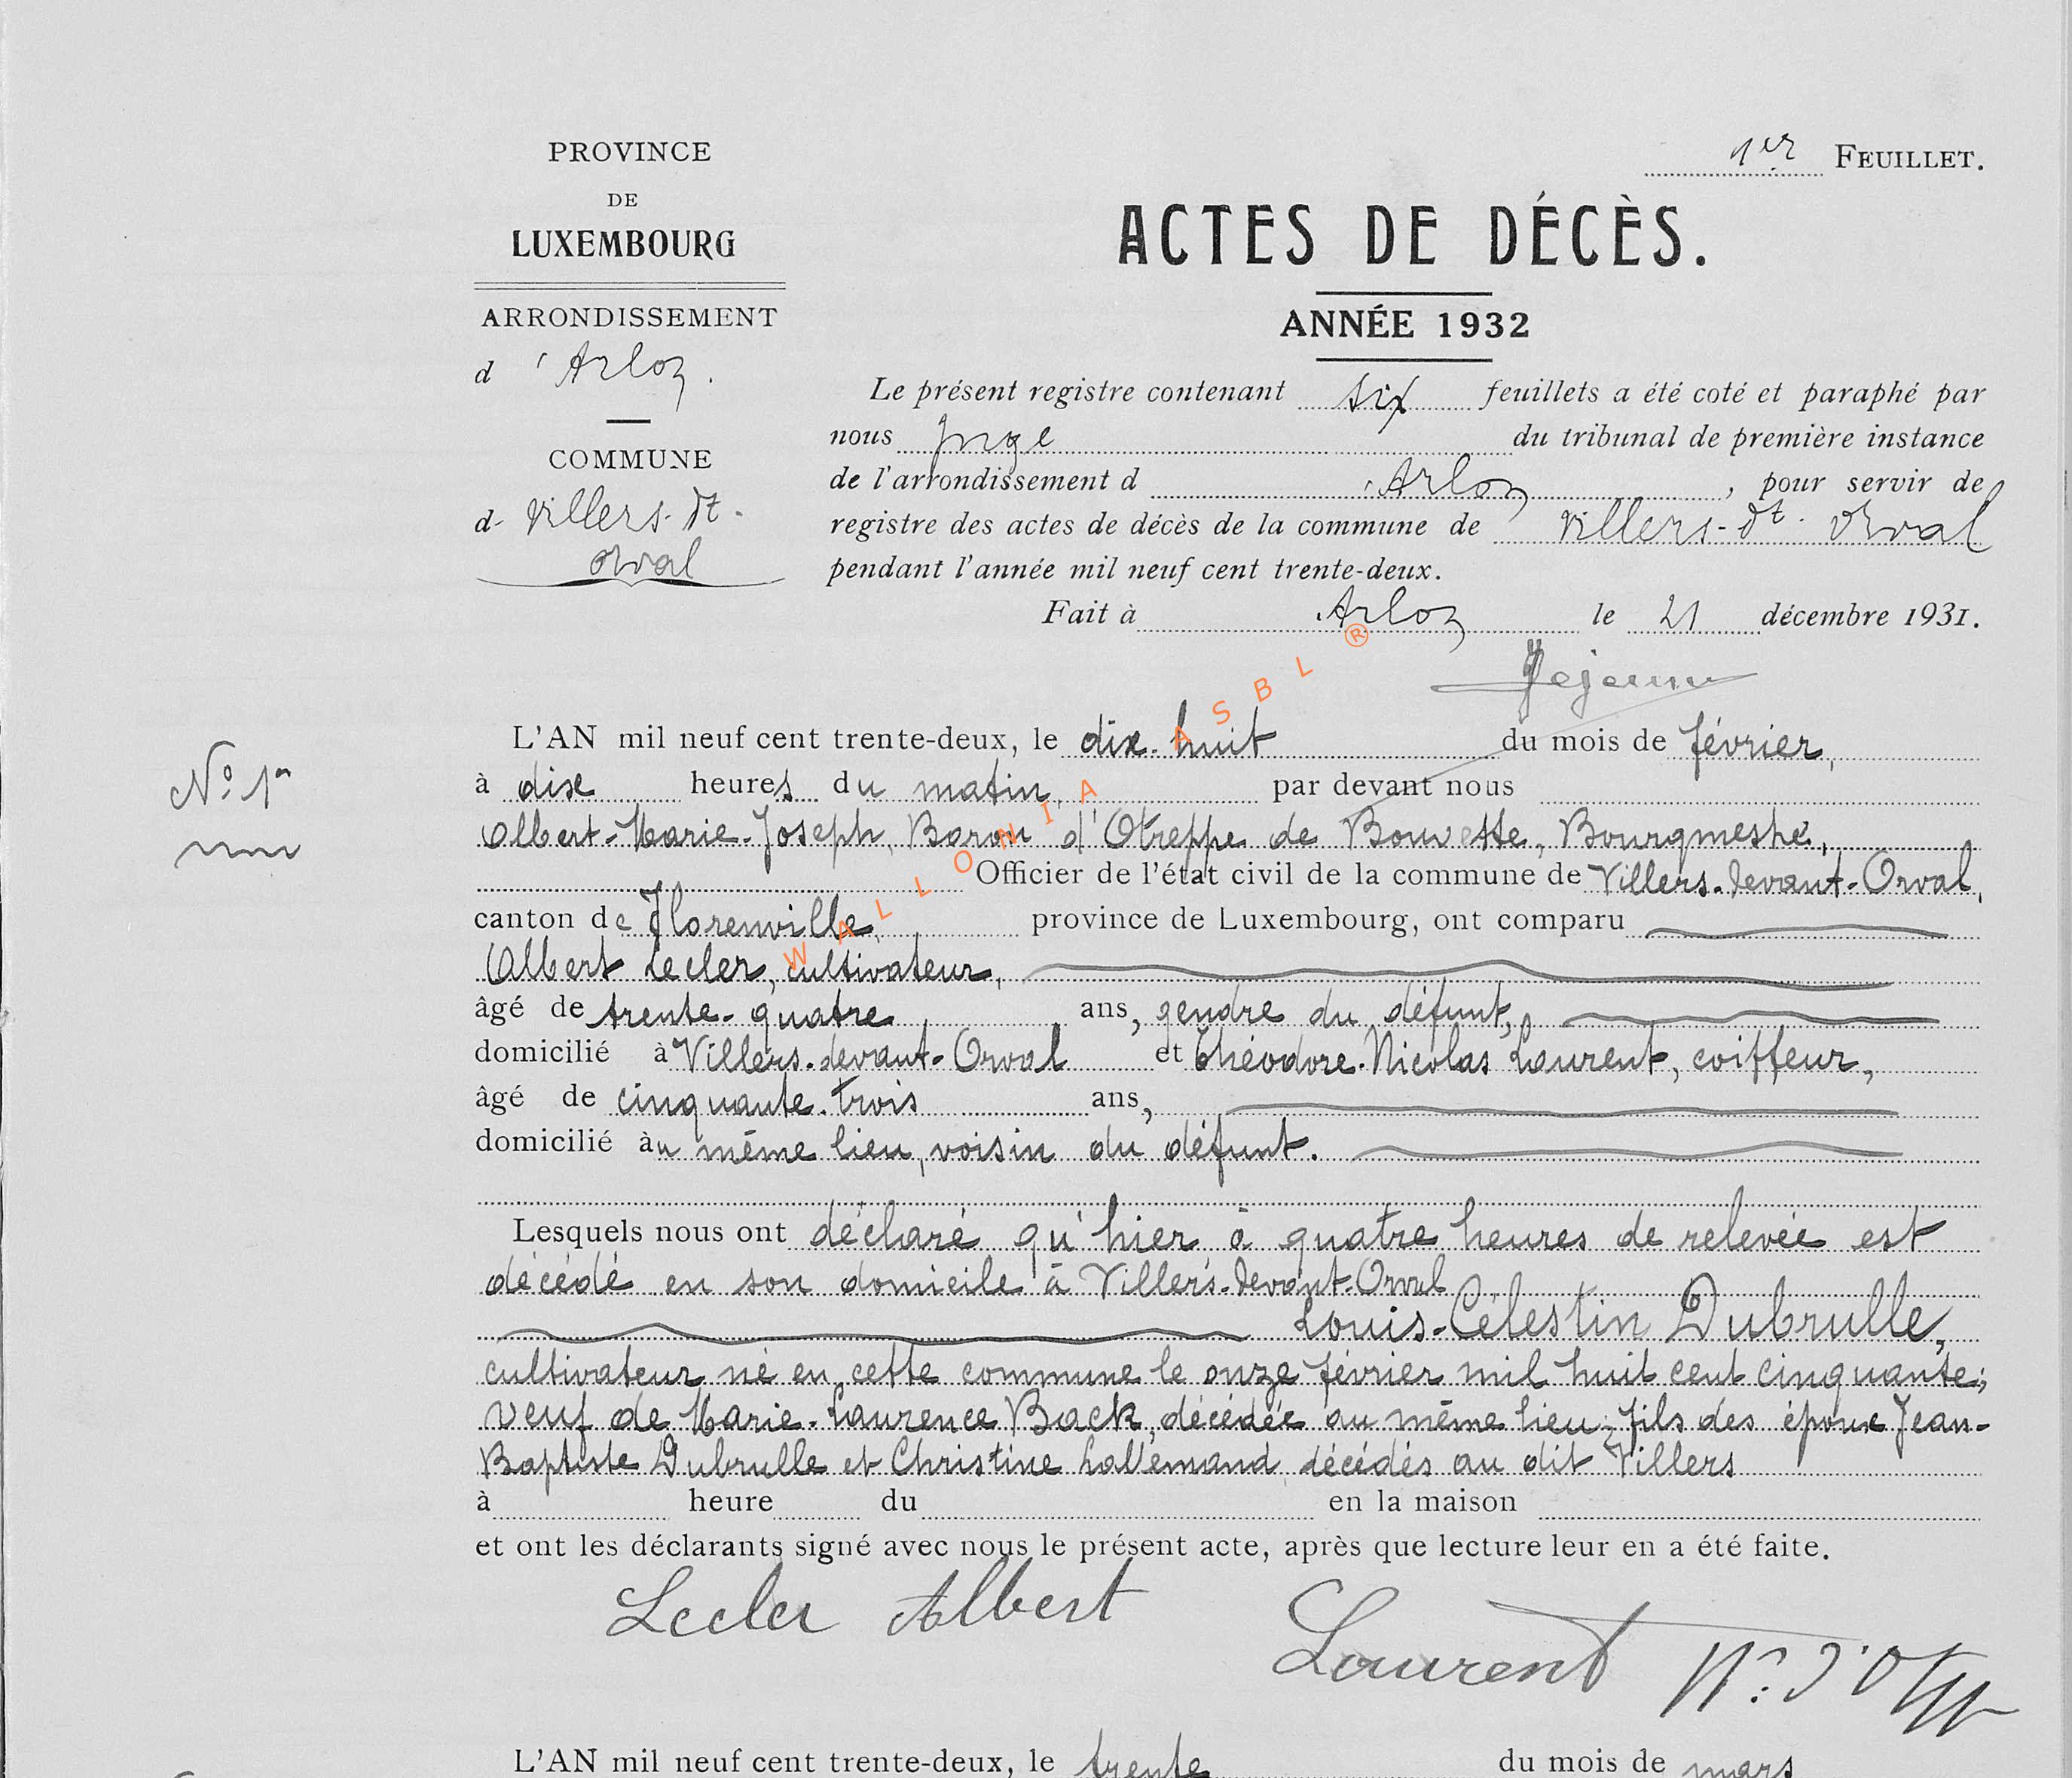 PROVINCE
DE
LUXEMBOURG
ARRONDISSEMENT
d'Arlon.
COMMUNE
d- Villers-dt-
Orval
1er FEUILLET.
ACTES DE DÉCÈS.
ANNÉE 1932
Le présent registre contenant six feuillets a été coté et paraphé par
nous Juge du tribunal de première instance
de l'arrondissement d'Arlon, pour servir de
registre des actes de décès de la commune de Villers-dt-Orval
pendant l'année mil neuf cent trente-deux.
Fait à Arlon le 21 décembre 1931.
WALLONIA ASBL ®
N° 1er
L'AN mil neuf cent trente-deux, le dix-huit du mois de février,
à dix heures du matin, par devant nous
Albert-Marie-Joseph, Baron d'Otreppe de Bouvette, Bourgmestre,
Officier de l'état civil de la commune de Villers-devant-Orval,
canton de Florenville, province de Luxembourg, ont comparu
Albert Lecler, cultivateur,
âgé de trente-quatre ans, gendre du défunt,
domicilié à Villers-devant-Orval et Théodore-Nicolas Laurent, coiffeur,
âgé de cinquante-trois ans,
domicilié au même lieu, voisin du défunt.
Lesquels nous ont déclaré qu'hier à quatre heures de relevée est
décédé en son domicile à Villers-devant-Orval
Louis-Célestin Dubrulle,
cultivateur né en cette commune le onze février mil huit cent cinquante;
veuf de Marie-Laurence Back, décédée au même lieu; fils des époux Jean-
Baptiste Dubrulle et Christine Lallemand décédés au dit Villers
à heure du en la maison
et ont les déclarants signé avec nous le présent acte, après que lecture leur en a été faite.
Lecler Albert
Laurent
L'AN mil neuf cent trente-deux, le trente du mois de mars